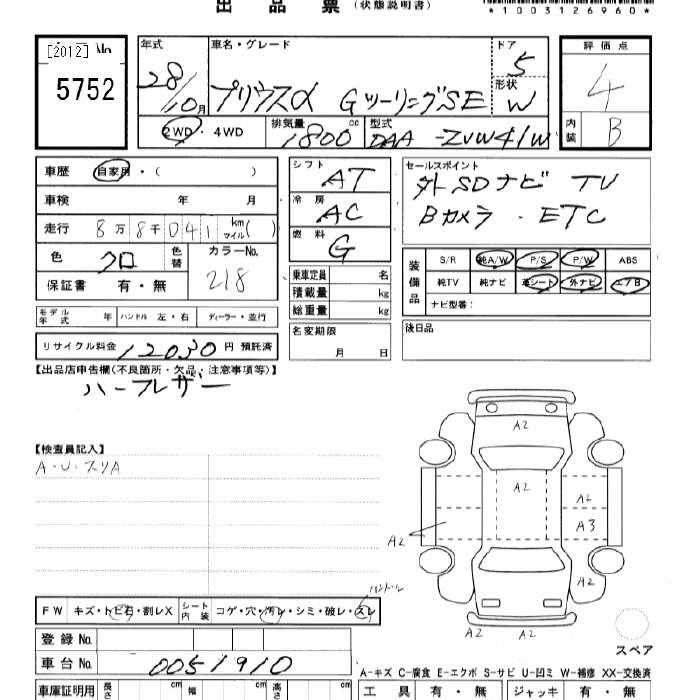 出品票(状態説明書)
*1003126960*
[2012] No
5752
年式
28/10月
車名・グレード
プリウスα GツーリングSE
ドア
5
形状
W
評価点
4
内装
B
2WD・4WD
排気量
1800 cc
型式
DAA-ZVW41W
車歴 自家用・( )
車検 年 月
走行 8万8千041 km マイル( )
色 クロ 色替
カラーNo.
218
保証書 有・無
シフト
AT
冷房
AC
燃料
G
セールスポイント
外SDナビ TV
Bカメラ・ETC
装備品
S/R 純A/W P/S P/W ABS
純TV 純ナビ 革シート 外ナビ エアB
ナビ型番:
乗車定員 名
積載量 kg
総重量 kg
モデル年式 年 ハンドル 左・右 ディーラー・並行
名変期限
月 日
後日品
リサイクル料金 12030 円 預託済
【出品店申告欄(不良箇所・欠品・注意事項等)】
ハーフレザー
【検査員記入】
A・U・スリA
A2
A2
A2
A3
A2
A2
ハンドル
A2 A2
スペア
FW キズ・トビ石・割レX シート内装 コゲ・穴・汚レ・シミ・破レ・スレ
登録No.
車台No. 0051910
A-キズ C-腐食 E-エクボ S-サビ U-凹ミ W-補修 XX-交換済
車庫証明用 長さ cm 幅 cm 高さ cm
工具 有・無 ジャッキ 有・無